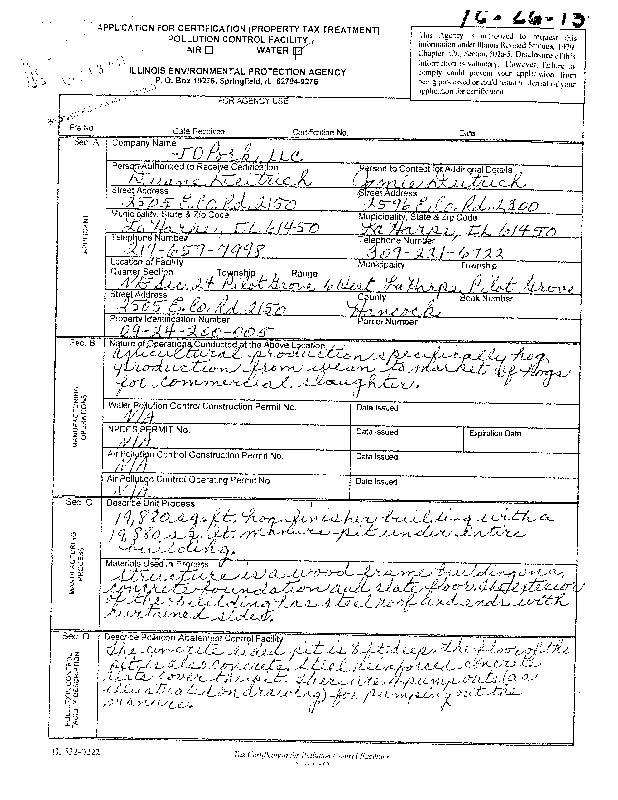 16-66-13
APPLICATION FOR CERTIFICATION (PROPERTY TAX TREATMENT)
POLLUTION CONTROL FACILITY
AIR ☐ WATER ☑
ILLINOIS ENVIRONMENTAL PROTECTION AGENCY
P. O. Box 19276, Springfield, IL 62794-9276
This Agency is authorized to request this
information under Illinois Revised Statutes, 1979,
Chapter 120, Section 502a-5. Disclosure of this
information is voluntary. However, failure to
comply could prevent your application from
being processed or could result in denial of your
application for certification.
FOR AGENCY USE
File No. Date Received Certification No. Date
Sec. A
APPLICANT
Company Name
JD Pork, LLC
Person Authorized to Receive Certification Person to Contact for Additional Details
Duane Deitrich Connie Deitrich
Street Address Street Address
2505 E. Co. Rd. 2150 2596 E. Co. Rd. 2200
Municipality, State & Zip Code Municipality, State & Zip Code
La Harpe, IL 61450 La Harpe, IL 61450
Telephone Number Telephone Number
217-659-7998 309-221-6722
Location of Facility Municipality Township
Quarter Section Township Range
NE Sec 24 Pilot Grove 6 West La Harpe Pilot Grove
Street Address County Book Number
2505 E. Co. Rd. 2150 Hancock
Property Identification Number Parcel Number
09-24-200-005
Sec. B
MANUFACTURING OPERATIONS
Nature of Operations Conducted at the Above Location
Agricultural production specifically hog
production from wean to market of hogs
for commercial slaughter.
Water Pollution Control Construction Permit No. Date Issued
N/A
NPDES PERMIT No. Date Issued Expiration Date
N/A
Air Pollution Control Construction Permit No. Date Issued
N/A
Air Pollution Control Operating Permit No. Date Issued
N/A
Sec. C
MANUFACTURING PROCESS
Describe Unit Process
19,880 sq. ft. hog finisher building with a
19,880 sq. ft. manure pit under entire
building.
Materials Used in Process
Structure is a wood frame building on a
concrete foundation and slate floor. The exterior
of the building has steel roof and ends with
curtained sides.
Sec. D
POLLUTION CONTROL FACILITY DESCRIPTION
Describe Pollution Abatement Control Facility
The concrete sided pit is 8 ft. deep. The floor of the
pit is also concrete. Steel reinforced concrete
slats cover the pit. There are 4 pump outs (as
illustrated on drawing) for pumping out the
manure.
IL 532-0222 Tax Certification for Pollution Control Facilities